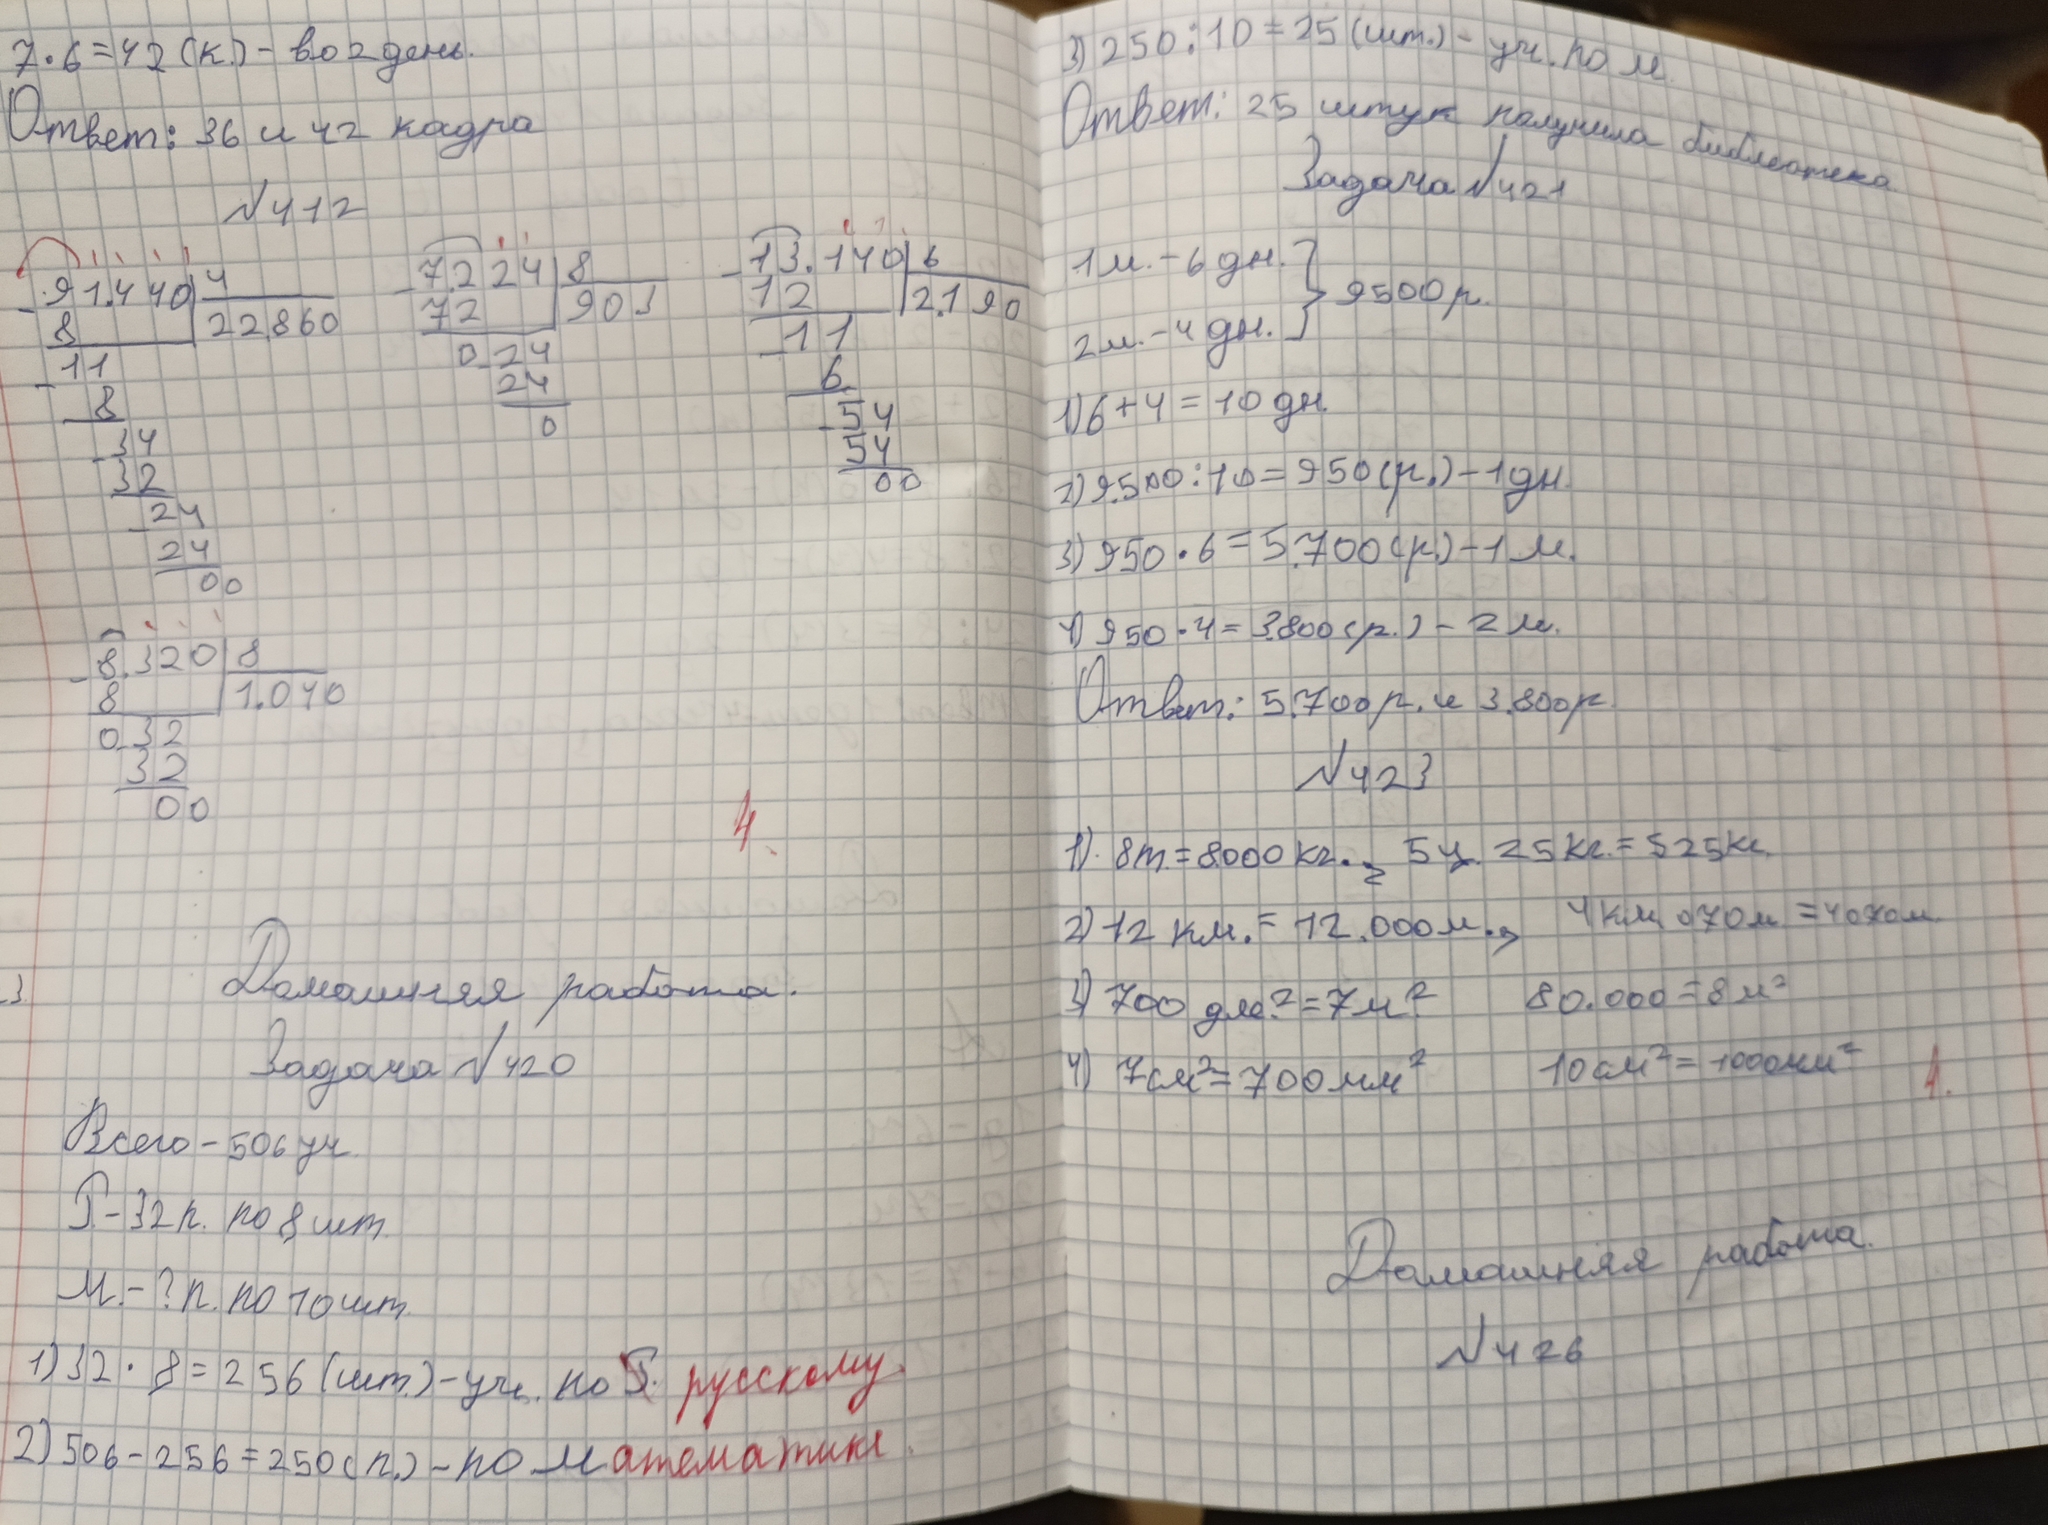 7·6=42(к.)-во 2 день.
Ответ: 36 и 42 кадра
№412
91.440 4
8 22.860
11
8
34
32
24
24
00
7.224 8
72 903
0.24
24
0
13.140 6
12 2.190
11
6
54
54
00
8.320 8
8 1.040
0.32
32
00
4.
Домашняя работа.
Задача №420
Всего-506 уч.
Г-32п. по 8 шт.
М.-?п. по 10 шт.
1)32·8=256(шт.)-уч. по русскому.
2)506-256=250(п.)-по математике.
3)250:10=25(шт.)-уч. по м.
Ответ: 25 штук получила библеотека
Задача №421
1м.-6 дн.
9500р.
2м.-4 дн.
1)6+4=10 дн.
2)9.500:10=950(р.)-1 дн.
3)950·6=5.700(р.)-1 м.
4)950·4=3.800(р.)-2 м.
Ответ: 5.700р. и 3.800р.
№423
1). 8т.=8000кг., 5ц. 25кг.=525кг.
2)12 км.=12.000м., 4км 070м=4070м.
3) 700 дм.²=7м² 80.000=8м²
4) 7см²=700мм² 10см²=1000мм²
4.
Домашняя работа.
№426